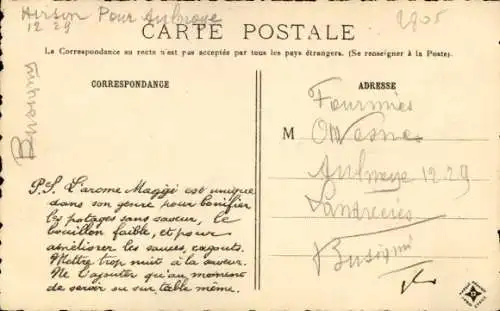 Hirson Pour Aulnoye
12 29
1905
CARTE POSTALE
La Correspondance au recto n'est pas acceptée par tous les pays étrangers. (Se renseigner à la Poste).
Busigny
CORRESPONDANCE
P.S. L'arome Maggi est unique
dans son genre pour bonifier
les potages sans saveur, le
bouillon faible, et pour
améliorer les sauces, ragouts.
Mettre trop nuit à la saveur.
Ne l'ajouter qu'au moment
de servir ou sur table même.
ADRESSE
Fourmies
M Avesnes
Aulnoye 12 29
Landrecies
Busigny